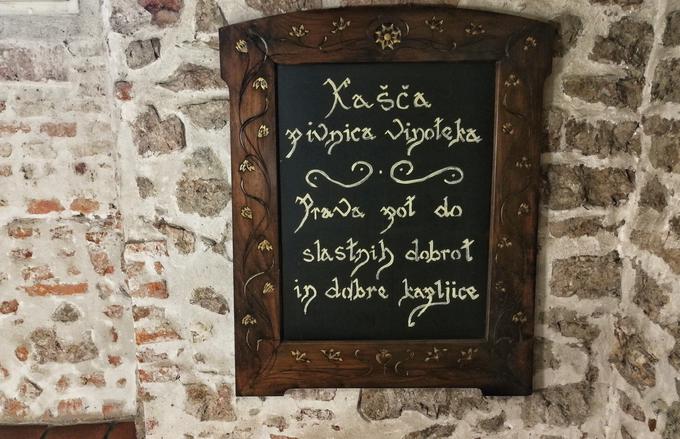 Kašča
pivnica vinoteka
Prava pot do
slastnih dobrot
in dobre kapljice